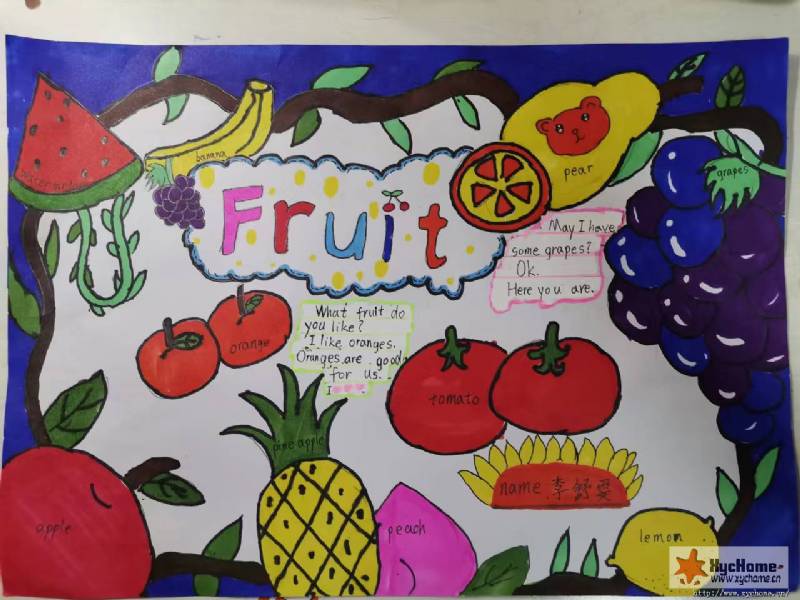 Fruit
watermelon
banana
pear
grapes
May I have
some grapes?
Ok.
Here you are.
What fruit do
you like?
I like oranges.
Oranges are good
for us.
I
orange
tomato
pine apple
name 李舒雯
apple
peach
lemon
XycHome
www.xychome.cn
http://www.xychome.cn/